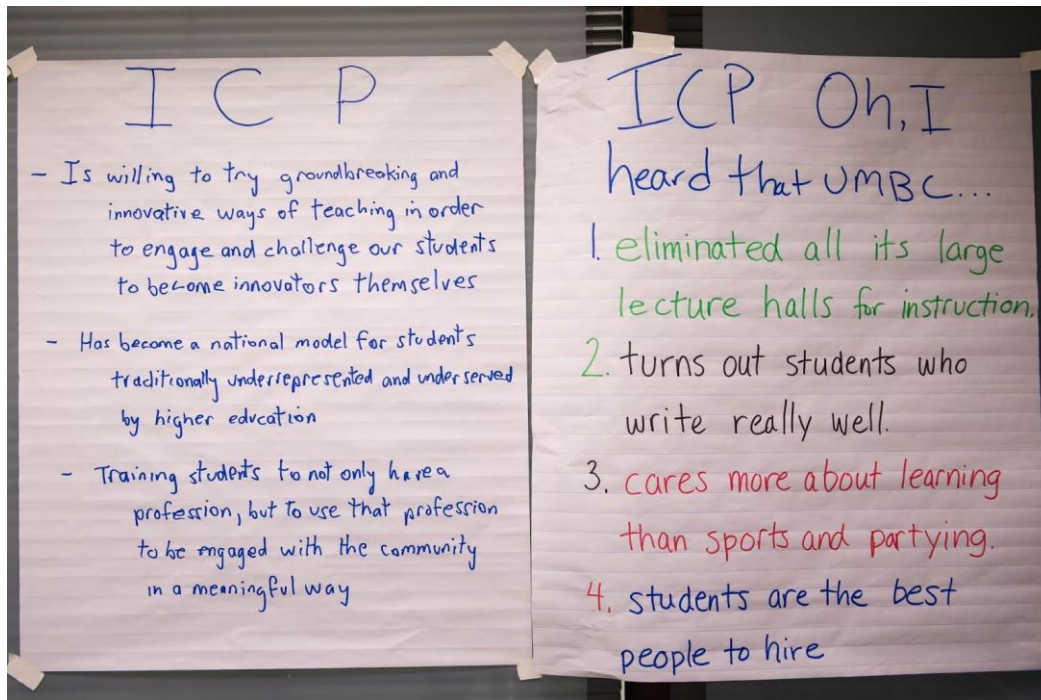 I C P
- Is willing to try groundbreaking and
innovative ways of teaching in order
to engage and challenge our students
to become innovators themselves
- Has become a national model for students
traditionally underrepresented and underserved
by higher education
- Training students to not only have a
profession, but to use that profession
to be engaged with the community
in a meaningful way
ICP Oh, I
heard that UMBC...
1. eliminated all its large
lecture halls for instruction.
2. turns out students who
write really well.
3. cares more about learning
than sports and partying.
4. students are the best
people to hire